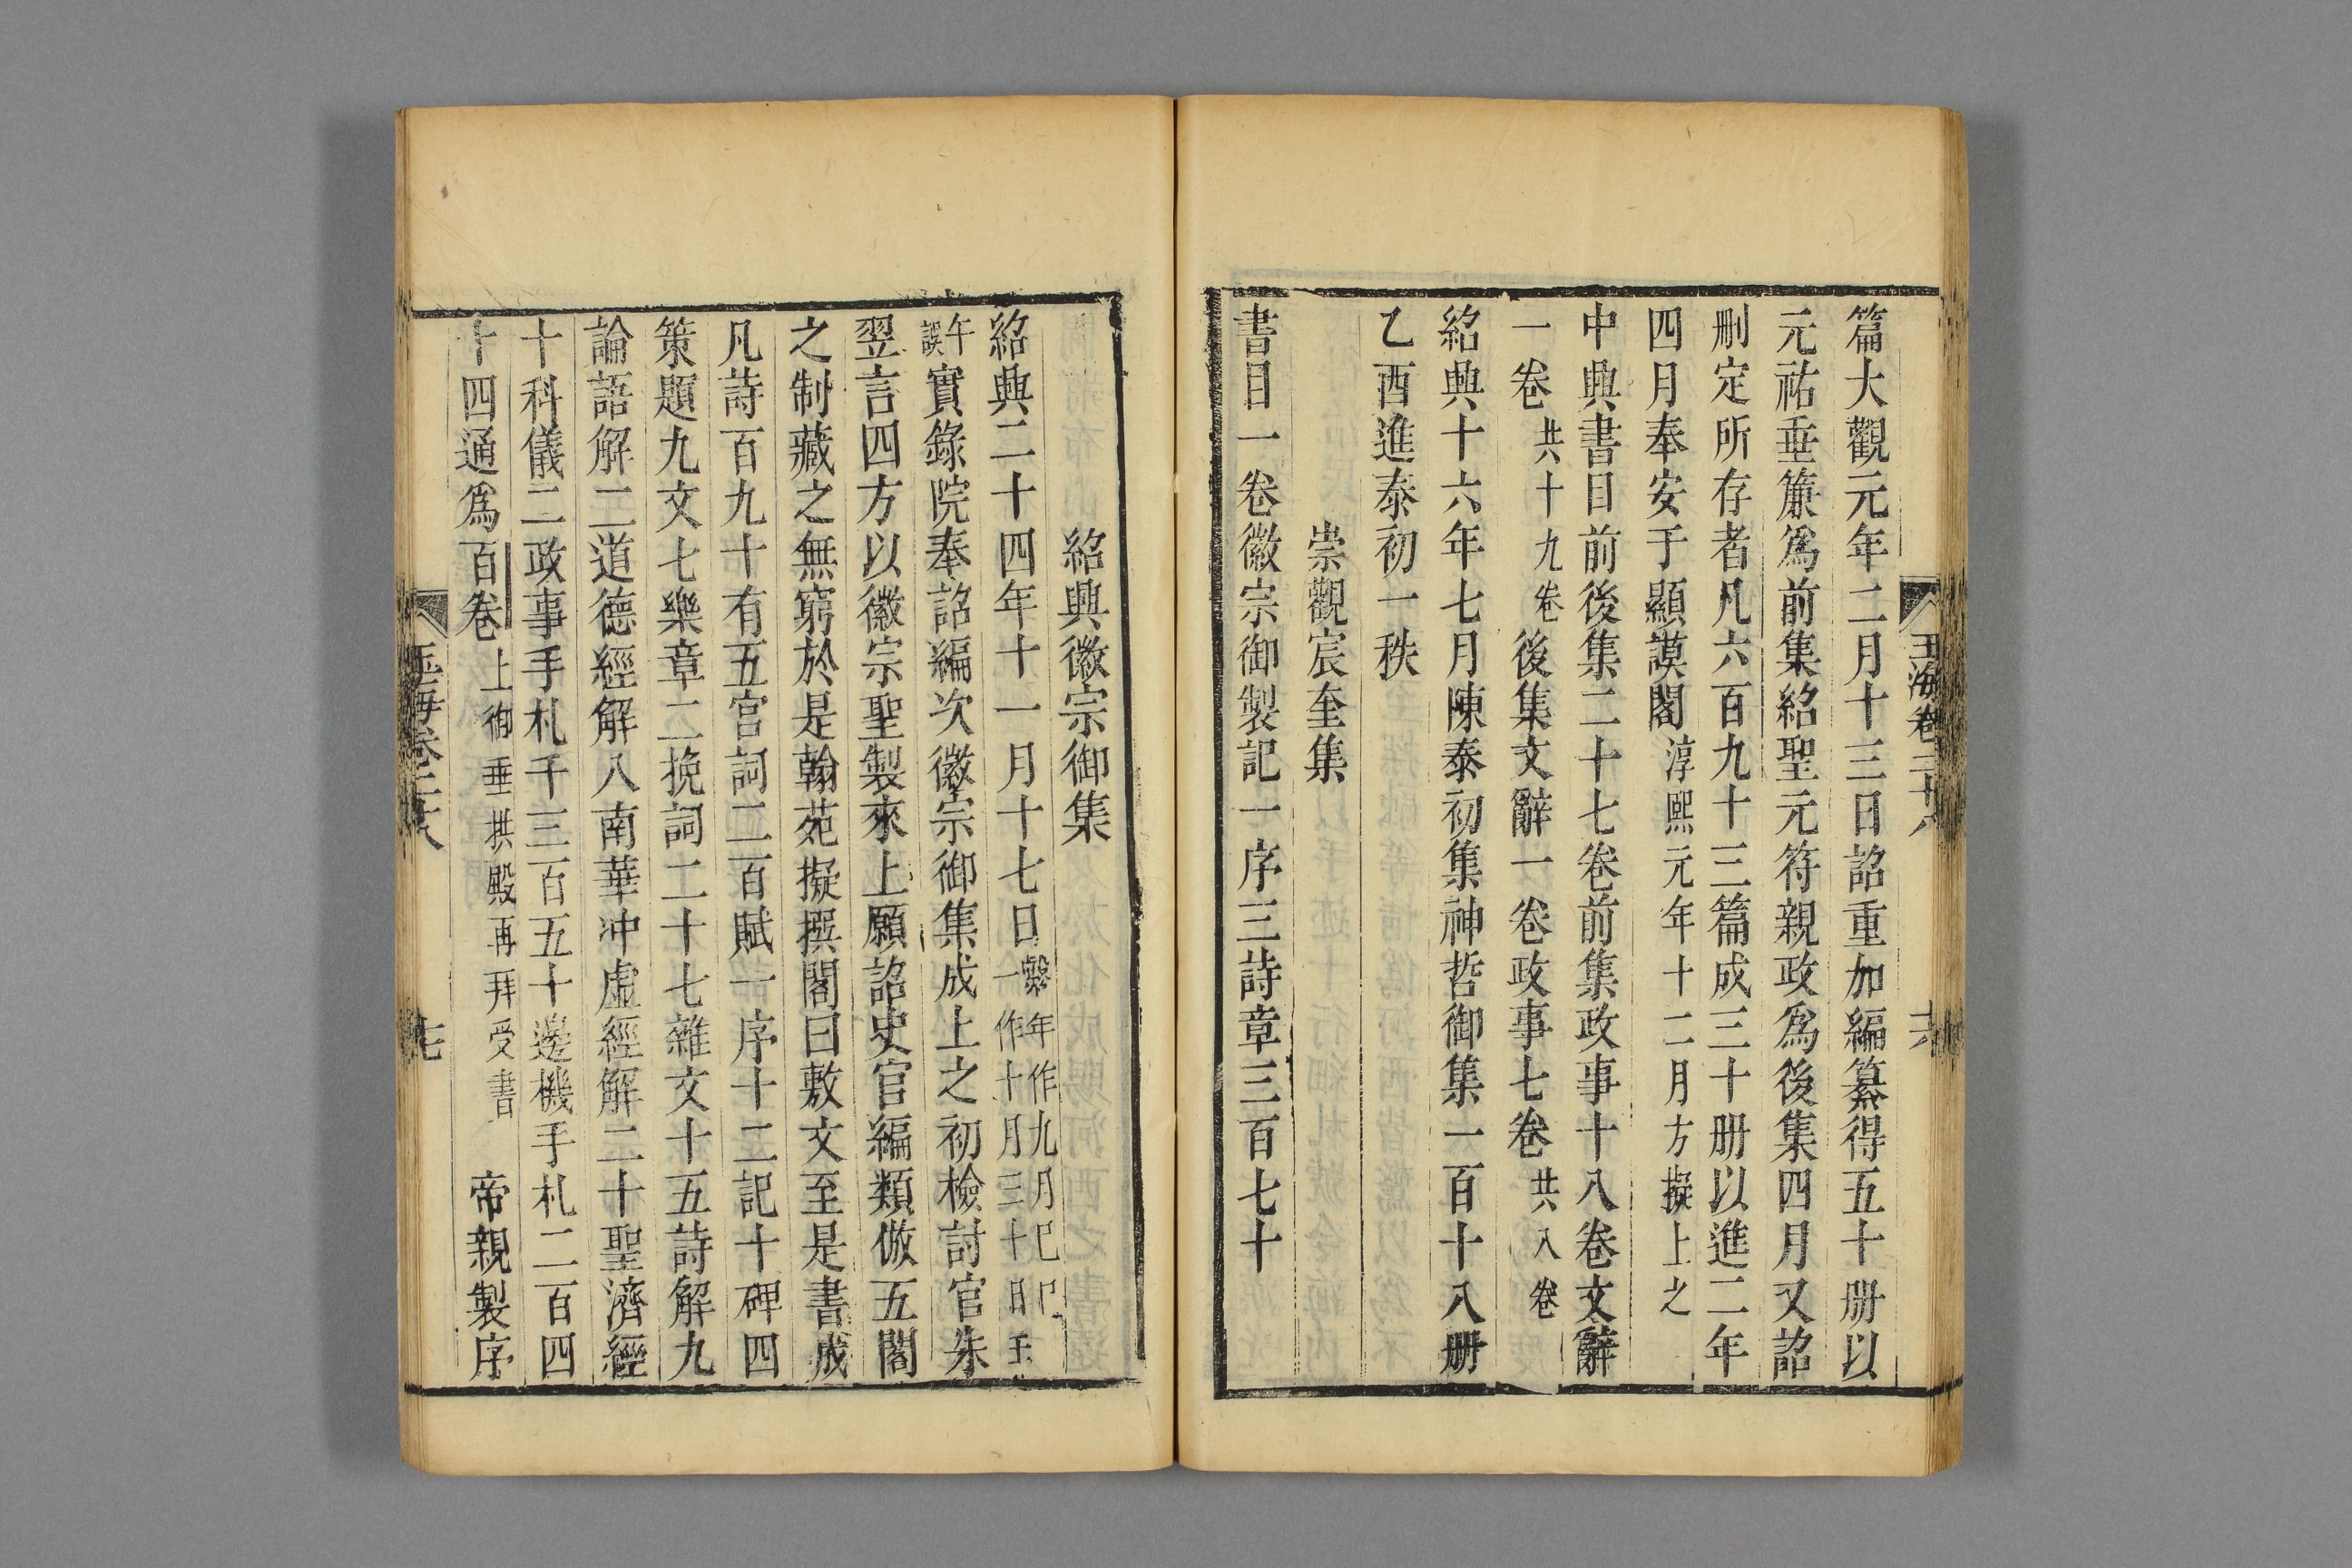 玉海卷二十八
十六
篇大觀元年二月十三日詔重加編纂得五十册以
元祐垂簾爲前集紹聖元符親政爲後集四月又詔
刪定所存者凡六百九十三篇成三十册以進二年
四月奉安于顯謨閣淳熙元年十二月方擬上之
中興書目前後集二十七卷前集政事十八卷文辭
一卷共十九卷後集文辭一卷政事七卷共八卷
紹興十六年七月陳泰初集神哲御集一百十八册
乙酉進泰初一秩
崇觀宸奎集
書目一卷徽宗御製記一序三詩章三百七十
紹興徽宗御集
紹興二十四年十一月十七日繫年作九月己巳一作十月三十日壬
午誤實錄院奉詔編次徽宗御集成上之初檢討官朱
翌言四方以徽宗聖製來上願詔史官編類倣五閣
之制藏之無窮於是翰苑擬撰閣曰敷文至是書成
凡詩百九十有五宮詞二百賦一序十二記十碑四
策題九文七樂章二挽詞二十七雜文十五詩解九
論語解二道德經解八南華冲虛經解二十聖濟經
十科儀二政事手札千三百五十邊機手札二百四
十四通爲百卷上御垂拱殿再拜受書帝親製序
玉海卷二十八
十七